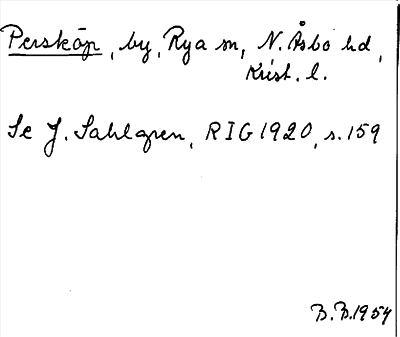 Persköp, by, Rya sn, N. Åsbo hd,
Krist. l.
Se J. Sahlgren, RIG 1920, s. 159
B.B. 1954